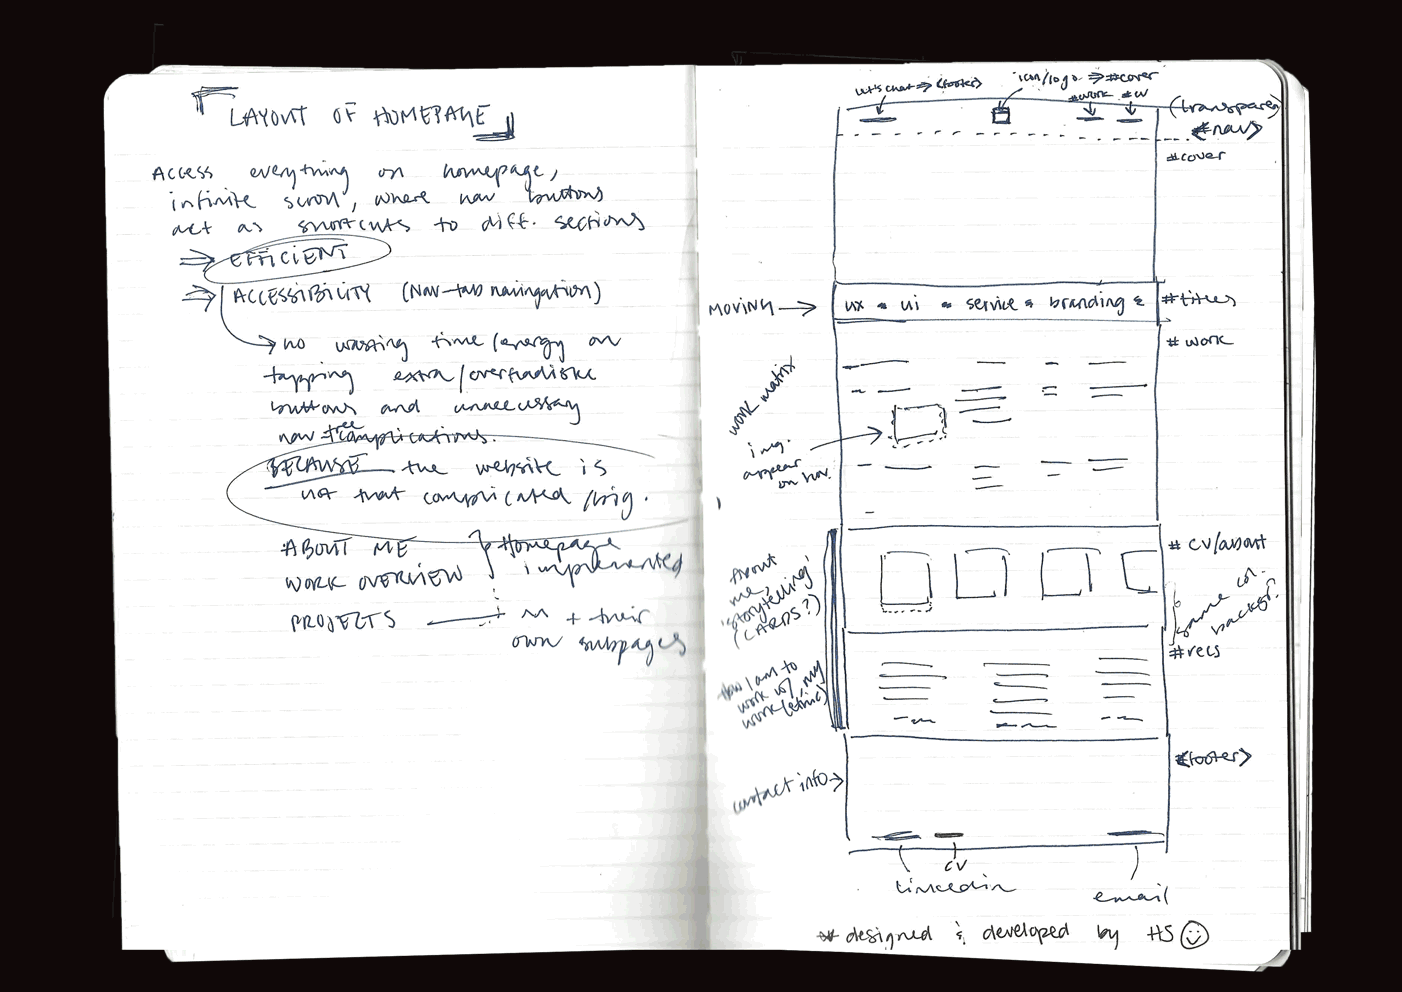 LAYOUT OF HOMEPAGE
ACCESS everything on homepage,
infinite scroll, where nav buttons
act as shortcuts to diff. sections
⇒ EFFICIENT
⇒ ACCESSIBILITY (Nav-tab navingation)
→ no wasting time/energy on
tapping extra/
buttons and unnecessay
nav tree complications.
BECAUSE the website is
not that complicated/big.
ABOUT ME
WORK OVERVIEW
} Homepage
implemented
PROJECTS
+ their
own subpages
let's chat ⇒ <footer>
icon/logo ⇒ #cover
#work #cv
(transparent)
<nav>
#cover
MOVING →
ux * ui * service * branding *
#titles
#work
work matrix
img.
appear
on hov.
#cv/about
About
me,
'storytelling'
(CARDS?)
same col.
backgr.
#recs
How I am to
work w/, my
work (ethic)
<footer>
contact info →
linkedin
cv
email
* designed & developed by HS